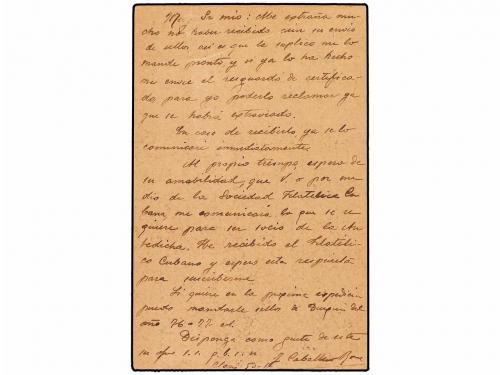 Sr mio: Me extraña mu-
cho no haber recibido aun su envio
de sellos asi es que le suplico me lo
mande pronto y si ya lo ha hecho
me envie el resguardo de certifica-
do para yo poderlo reclamar ya
que se habrá extraviado.
En caso de recibirlo ya se lo
comunicaré inmediatamente.
Al propio tiempo espero de
su amabilidad que V. o por me-
dio de la Sociedad Filatelica Cu-
bana me comunicará lo que se re-
quiere para ser socio de la An-
tedicha. He recibido el Filatéli-
co Cubano y espero esta respuesta
para suscribirme
Si quiere en la próxima expedición
puedo mandarle sellos de del
año 76 - 77 et.
Disponga como guste de este
su q.b.s.m
Caballero